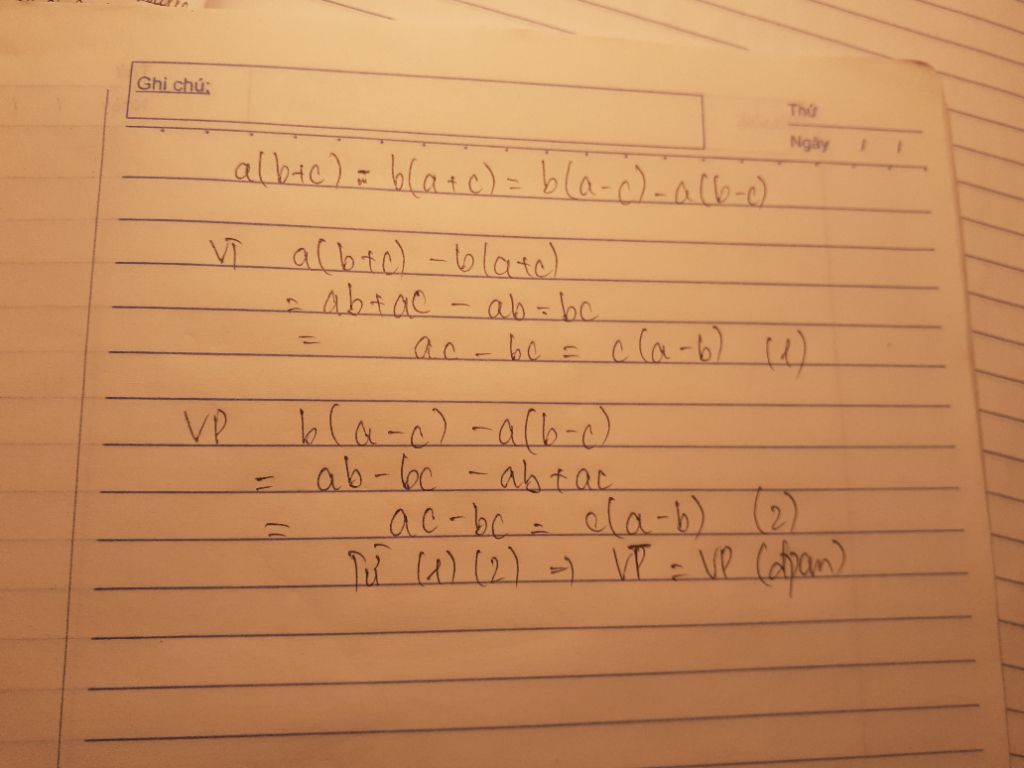 Ghi chú:
Thứ
Ngày / /
a(b+c) = b(a+c) = b(a-c) - a(b-c)
VT a(b+c) - b(a+c)
= ab+ac - ab - bc
= ac - bc = c(a-b) (1)
VP b(a-c) - a(b-c)
= ab-bc - ab+ac
= ac-bc = c(a-b) (2)
Từ (1) (2) => VT = VP (đpcm)